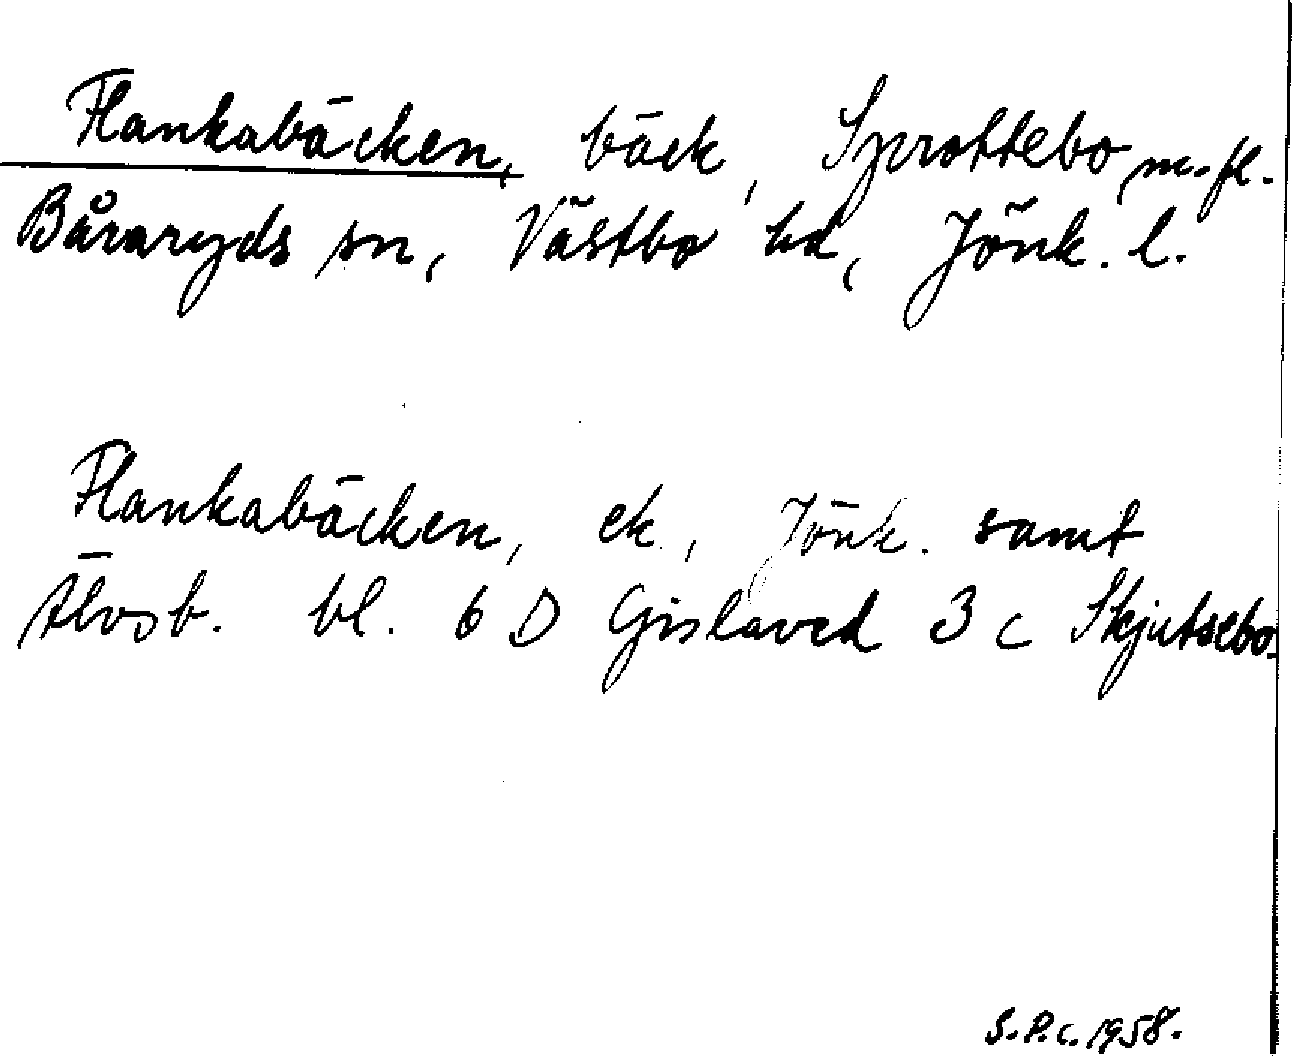 Flankabäcken, bäck, Sprottebo m.fl.
Båraryds sn, Västbo hd, Jönk. l.
Flankabäcken, ek., Jönk. samt
Älvsb. bl. 6 D Gislaved 3 c Skjutsebo.
S.P.C. 1958.